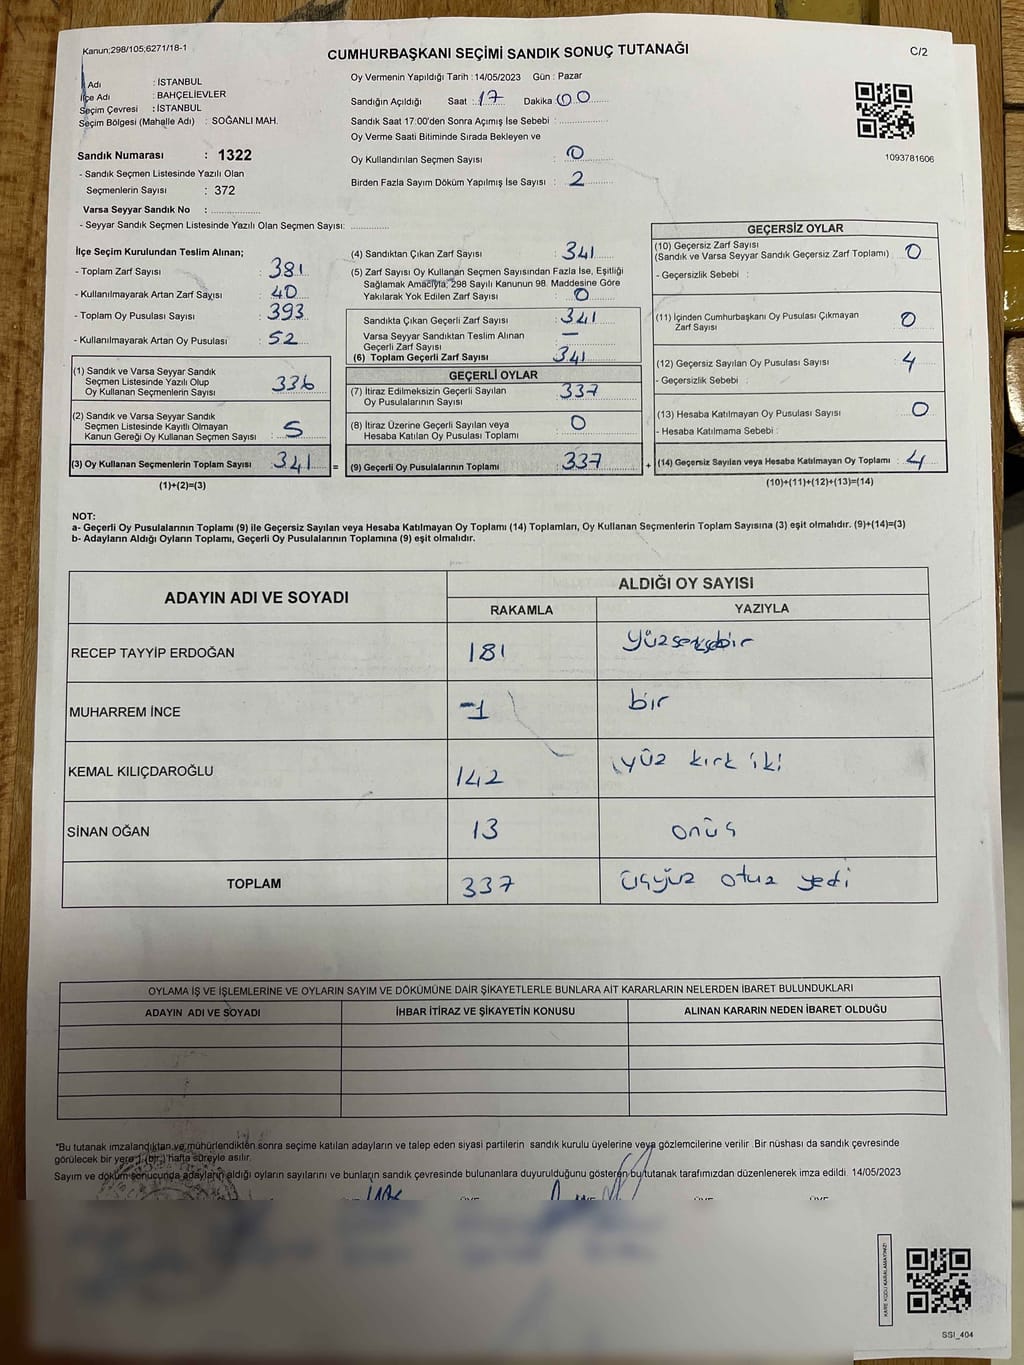 Kanun;298/105;6271/18-1
CUMHURBAŞKANI SEÇİMİ SANDIK SONUÇ TUTANAĞI
C/2
Adı : İSTANBUL
İlçe Adı : BAHÇELİEVLER
Seçim Çevresi : İSTANBUL
Seçim Bölgesi (Mahalle Adı) : SOĞANLI MAH.
Sandık Numarası : 1322
- Sandık Seçmen Listesinde Yazılı Olan
Seçmenlerin Sayısı : 372
Varsa Seyyar Sandık No : ................
- Seyyar Sandık Seçmen Listesinde Yazılı Olan Seçmen Sayısı: ............
Oy Vermenin Yapıldığı Tarih : 14/05/2023 Gün : Pazar
Sandığın Açıldığı Saat : 17 Dakika 00
Sandık Saat 17:00'den Sonra Açımış İse Sebebi : ................
Oy Verme Saati Bitiminde Sırada Bekleyen ve
Oy Kullandırılan Seçmen Sayısı : 0
Birden Fazla Sayım Döküm Yapılmış İse Sayısı : 2
1093781606
İlçe Seçim Kurulundan Teslim Alınan;
- Toplam Zarf Sayısı : 381
- Kullanılmayarak Artan Zarf Sayısı : 40
- Toplam Oy Pusulası Sayısı : 393
- Kullanılmayarak Artan Oy Pusulası : 52
(1) Sandık ve Varsa Seyyar Sandık
Seçmen Listesinde Yazılı Olup
Oy Kullanan Seçmenlerin Sayısı : 336
(2) Sandık ve Varsa Seyyar Sandık
Seçmen Listesinde Kayıtlı Olmayan
Kanun Gereği Oy Kullanan Seçmen Sayısı : 5
(3) Oy Kullanan Seçmenlerin Toplam Sayısı : 341 =
(1)+(2)=(3)
(4) Sandıktan Çıkan Zarf Sayısı : 341
(5) Zarf Sayısı Oy Kullanan Seçmen Sayısından Fazla İse, Eşitliği
Sağlamak Amacıyla, 298 Sayılı Kanunun 98. Maddesine Göre
Yakılarak Yok Edilen Zarf Sayısı : 0
Sandıkta Çıkan Geçerli Zarf Sayısı : 341
Varsa Seyyar Sandıktan Teslim Alınan
Geçerli Zarf Sayısı : —
(6) Toplam Geçerli Zarf Sayısı : 341
GEÇERLİ OYLAR
(7) İtiraz Edilmeksizin Geçerli Sayılan
Oy Pusulalarının Sayısı : 337
(8) İtiraz Üzerine Geçerli Sayılan veya
Hesaba Katılan Oy Pusulası Toplamı : 0
(9) Geçerli Oy Pusulalarının Toplamı : 337 +
GEÇERSİZ OYLAR
(10) Geçersiz Zarf Sayısı
(Sandık ve Varsa Seyyar Sandık Geçersiz Zarf Toplamı) : 0
- Geçersizlik Sebebi :
(11) İçinden Cumhurbaşkanı Oy Pusulası Çıkmayan
Zarf Sayısı : 0
(12) Geçersiz Sayılan Oy Pusulası Sayısı : 4
- Geçersizlik Sebebi :
(13) Hesaba Katılmayan Oy Pusulası Sayısı : 0
- Hesaba Katılmama Sebebi :
(14) Geçersiz Sayılan veya Hesaba Katılmayan Oy Toplamı : 4
(10)+(11)+(12)+(13)=(14)
NOT:
a- Geçerli Oy Pusulalarının Toplamı (9) ile Geçersiz Sayılan veya Hesaba Katılmayan Oy Toplamı (14) Toplamları, Oy Kullanan Seçmenlerin Toplam Sayısına (3) eşit olmalıdır. (9)+(14)=(3)
b- Adayların Aldığı Oyların Toplamı, Geçerli Oy Pusulalarının Toplamına (9) eşit olmalıdır.
ADAYIN ADI VE SOYADI
ALDIĞI OY SAYISI
RAKAMLA YAZIYLA
RECEP TAYYİP ERDOĞAN 181 yüzseksenbir
MUHARREM İNCE -1 bir
KEMAL KILIÇDAROĞLU 142 yüz kırk iki
SİNAN OĞAN 13 onüç
TOPLAM 337 üçyüz otuz yedi
OYLAMA İŞ VE İŞLEMLERİNE VE OYLARIN SAYIM VE DÖKÜMÜNE DAİR ŞİKAYETLERLE BUNLARA AİT KARARLARIN NELERDEN İBARET BULUNDUKLARI
ADAYIN ADI VE SOYADI İHBAR İTİRAZ VE ŞİKAYETİN KONUSU ALINAN KARARIN NEDEN İBARET OLDUĞU
*Bu tutanak imzalandıktan ve mühürlendikten sonra seçime katılan adayların ve talep eden siyasi partilerin sandık kurulu üyelerine veya gözlemcilerine verilir .Bir nüshası da sandık çevresinde
görülecek bir yere 1 (bir) hafta süreyle asılır.
Sayım ve döküm sonucunda adayların aldığı oyların sayılarını ve bunların sandık çevresinde bulunanlara duyurulduğunu gösteren bu tutanak tarafımızdan düzenlenerek imza edildi. 14/05/2023
KARE KODU KARALAMAYINIZ!
SSI_404